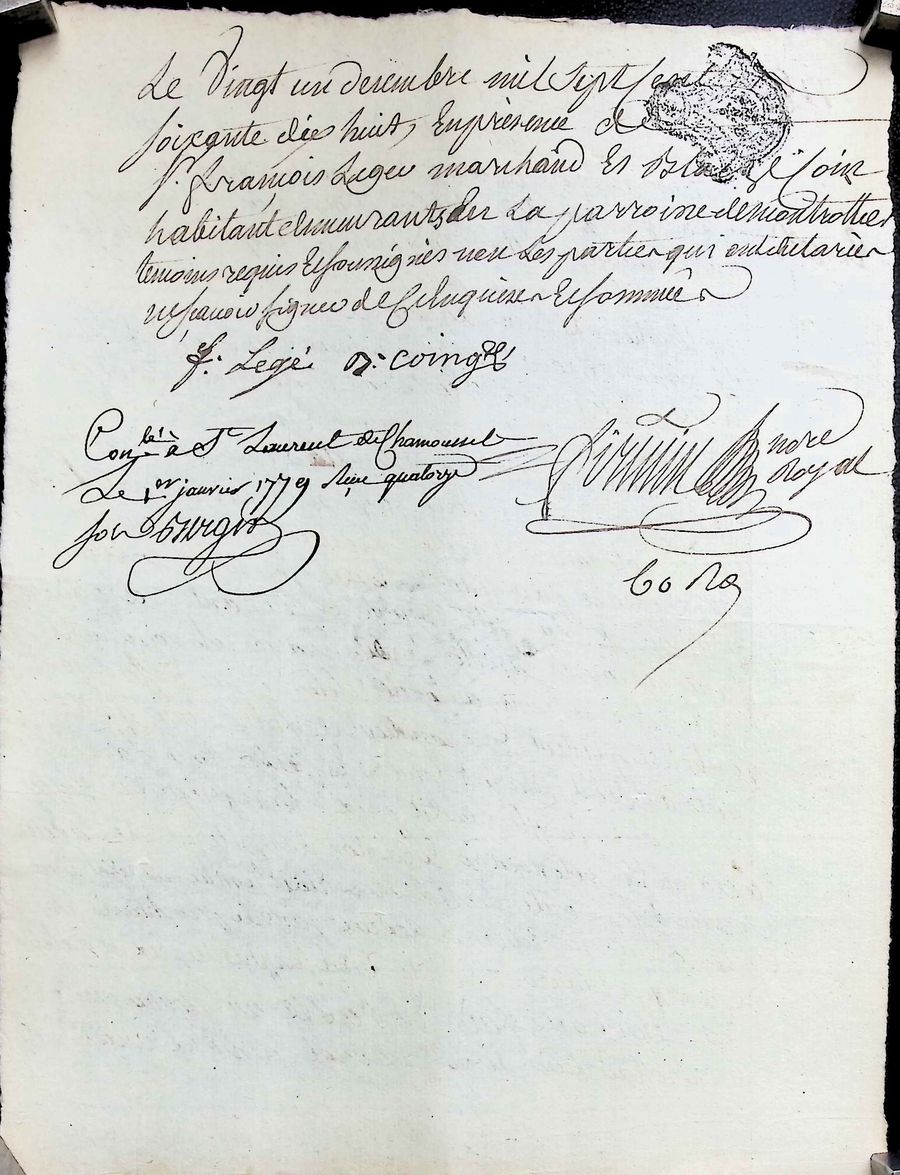 Le Vingt un decembre mil Sept Cent
soixante dix huit, En présence de
Sr. François Leger marchand Et Coin
habitant demeurants En La parroisse de montrottier
temoins requis Et soussignés non Les parties qui ont declaré
ne sçavoir signer de Ce Enquises Et sommées
f. Legé coing
Conlé à St Laurent de Chamousset
Le 1er janvier 1779 Reçu quatorze
sols
nore
Royal